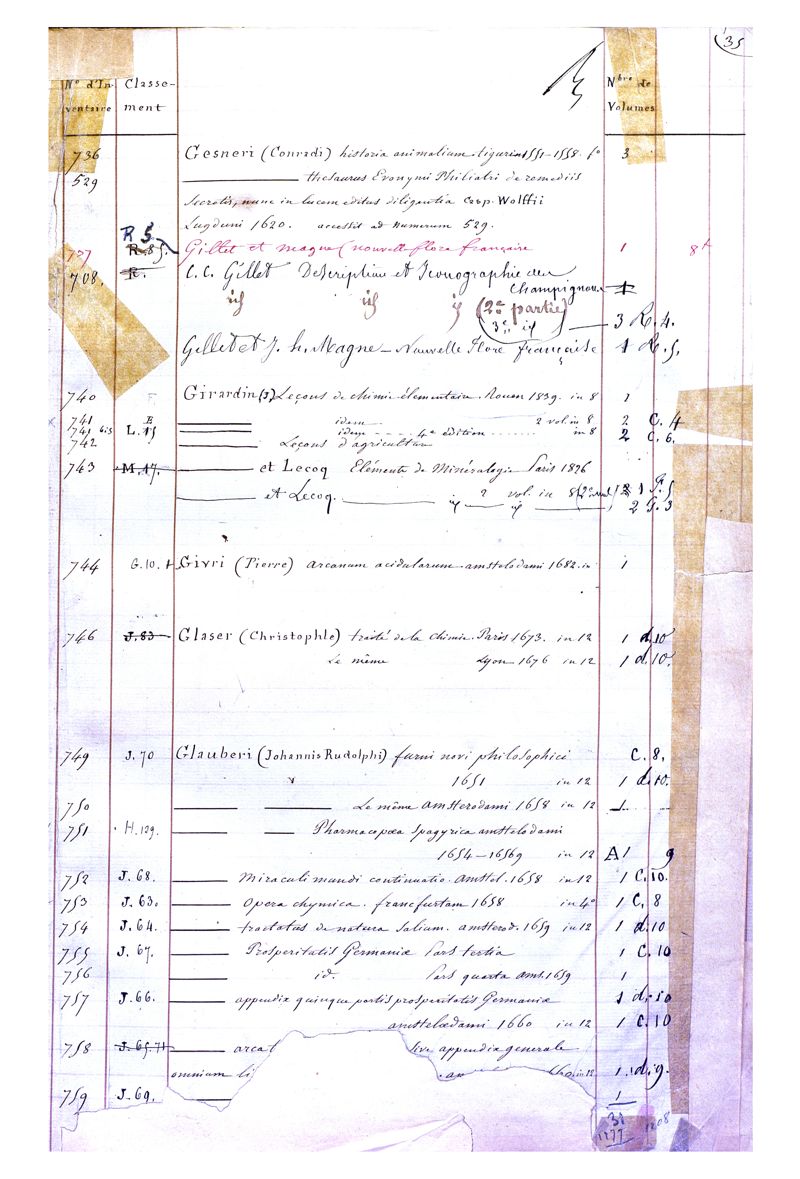 35
N° d'Inventaire Classement Nbre de Volumes
736 Gesneri (Conradi) historia animalium. tigurin 1551-1558. f° 3
529 thesaurus Evonymi Philiatri de remediis
secretis, nunc in lucem editus diligentia Casp. Wolffii
Lugduni 1620. accessit ad numerum 529.
R 5.
737 R.85. Gillet et magne (nouvelle flore française 1 8°
708. R. C.C. Gillet Description et Iconographie des
Champignons 1
id id id (2e partie)
3e id 3 R. 4.
Gillet et J. h. Magne - Nouvelle Flore française 1 R. 5.
740 Girardin (J) Leçons de chimie élémentaire. Rouen 1839. in 8 1
741 E idem 2 vol. in 8 2 C. 4
741 bis L. 15 idem 4e édition in 8 2 C. 6.
742 Leçons d'agriculture
743 M. 17. et Lecoq Eléments de Minéralogie Paris 1826
et Lecoq. id 2 vol. in 8 id 2 1 G. 5
2 G. 3
744 G. 10. Givri (Pierre) arcanum acidularum. amstelodami 1682. in 1
746 J. 83 Glaser (Christophle) traité de la chimie. Paris 1673. in 12 1 d. 10
Le même Lyon 1676 in 12 1 d. 10.
749 J. 70 Glauberi (Johannis Rudolphi) furni novi philosophici C. 8.
1651 in 12 1 d. 10.
750 Le même amsterodami 1658 in 12 1
751 H. 129. Pharmacopœa spagyrica amstelodami
1654-16569 in 12 A 1 9
752 J. 68. Miraculi mundi continuatio. amstel. 1658 in 12 1 C. 10.
753 J. 63. Opera chymica. francfurtam 1658 in 4° 1 C. 8
754 J. 64. tractatus de natura salium. amsterod. 1659 in 12 1 d. 10
755 J. 67. Prosperitatis Germaniæ Pars tertia 1 C. 10
756 id. Pars quarta ams. 1659 1
757 J. 66. appendix quinque partis prosperitatis Germaniæ 1 d. 10
amstelœdami 1660 in 12 1 C. 10
758 J. 65. 71 arcat sive appendix generale
omnium li in 12 1 d. 9.
759 J. 69. 1
31
1277 1208